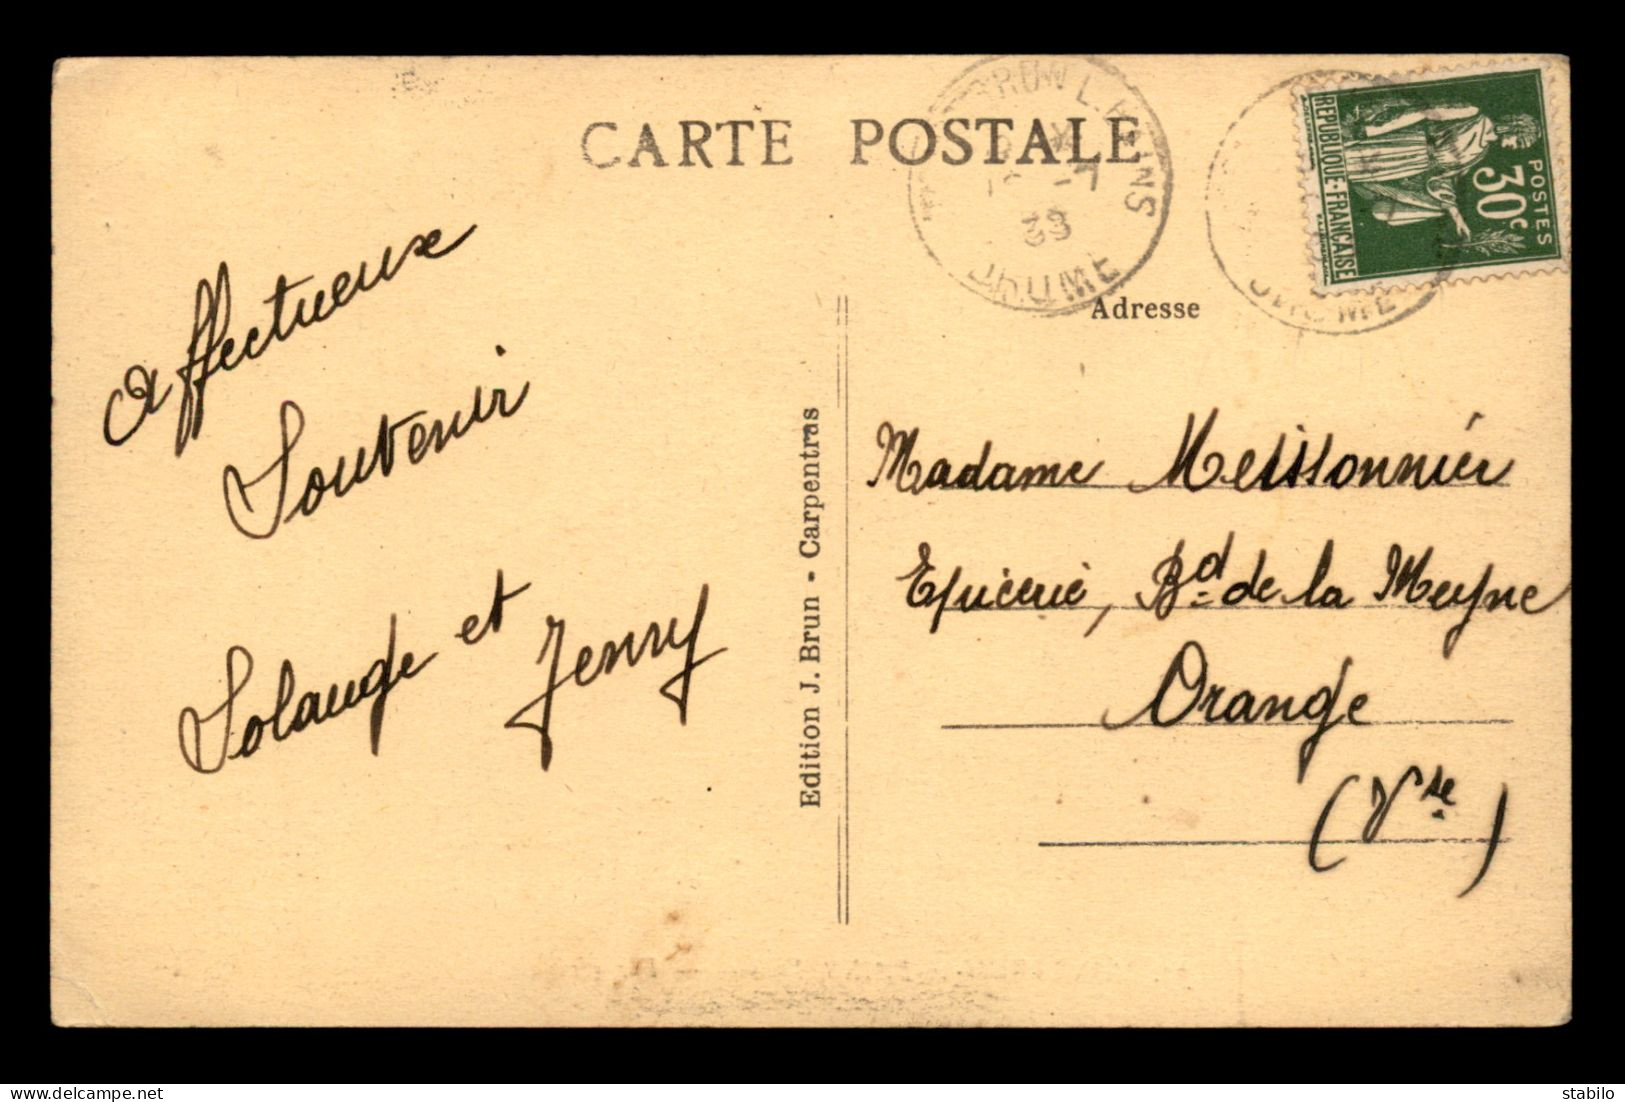 CARTE POSTALE
L. BAINS
-7
39
DROME
REPUBLIQUE·FRANÇAISE
POSTES
30c
Adresse
Affectueux
Souvenir
Solange et Jenny
Edition J. Brun - Carpentras
Madame Meissonnier
Epicerie, Bd de la Meyne
Orange
(Vse)
delcampe.net
stabilo